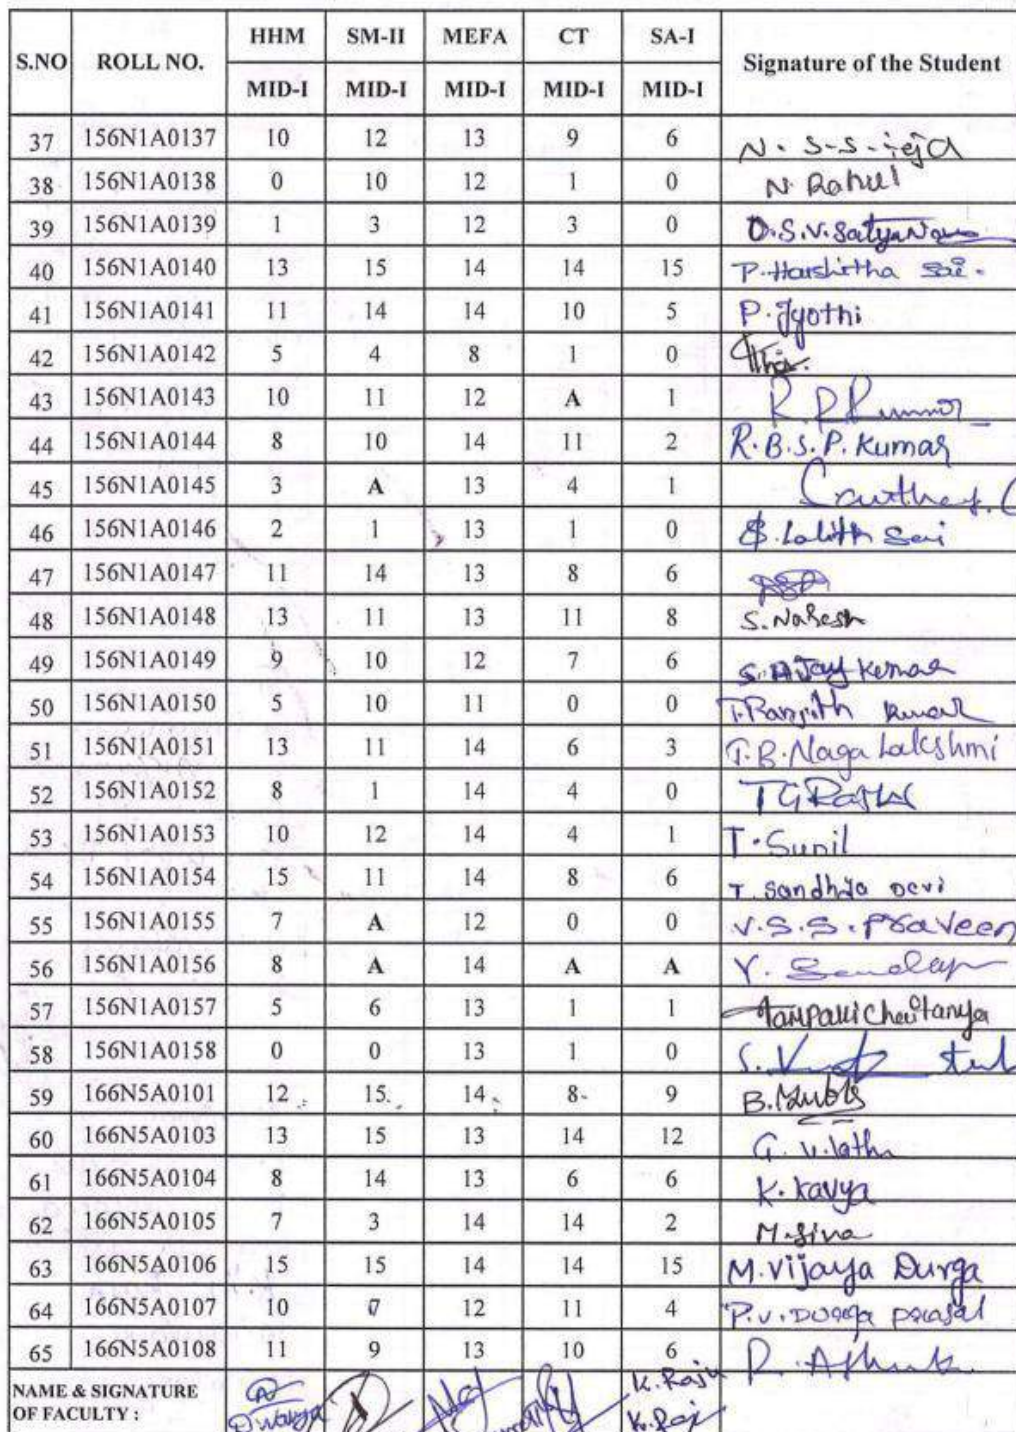 S.NO ROLL NO. HHM SM-II MEFA CT SA-I Signature of the Student
MID-I MID-I MID-I MID-I MID-I
37 156N1A0137 10 12 13 9 6 N. S-S-
38 156N1A0138 0 10 12 1 0 N. Rahul
39 156N1A0139 1 3 12 3 0
40 156N1A0140 13 15 14 14 15 P. Harshitha Sai.
41 156N1A0141 11 14 14 10 5 P. Jyothi
42 156N1A0142 5 4 8 1 0
43 156N1A0143 10 11 12 A 1
44 156N1A0144 8 10 14 11 2 R.B.S.P. Kumar
45 156N1A0145 3 A 13 4 1
46 156N1A0146 2 1 13 1 0 S. Lalith Sai
47 156N1A0147 11 14 13 8 6
48 156N1A0148 13 11 13 11 8 S. Naresh
49 156N1A0149 9 10 12 7 6 S. Ajay Kumar
50 156N1A0150 5 10 11 0 0 T. Ranjith Kumar
51 156N1A0151 13 11 14 6 3 T.B. Naga Lakshmi
52 156N1A0152 8 1 14 4 0
53 156N1A0153 10 12 14 4 1 T. Sunil
54 156N1A0154 15 11 14 8 6 T. Sandhya Devi
55 156N1A0155 7 A 12 0 0 V.S.S. Praveen
56 156N1A0156 8 A 14 A A
57 156N1A0157 5 6 13 1 1
58 156N1A0158 0 0 13 1 0
59 166N5A0101 12 15 14 8 9
60 166N5A0103 13 15 13 14 12 G. V. latha
61 166N5A0104 8 14 13 6 6 K. Kavya
62 166N5A0105 7 3 14 14 2 M. Siva
63 166N5A0106 15 15 14 14 15 M. Vijaya Durga
64 166N5A0107 10 7 12 11 4 P.V. Durga prasad
65 166N5A0108 11 9 13 10 6
NAME & SIGNATURE K. Raju
OF FACULTY : K. Raj